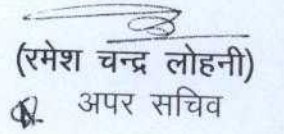 (रमेश चन्द्र लोहनी)
अपर सचिव